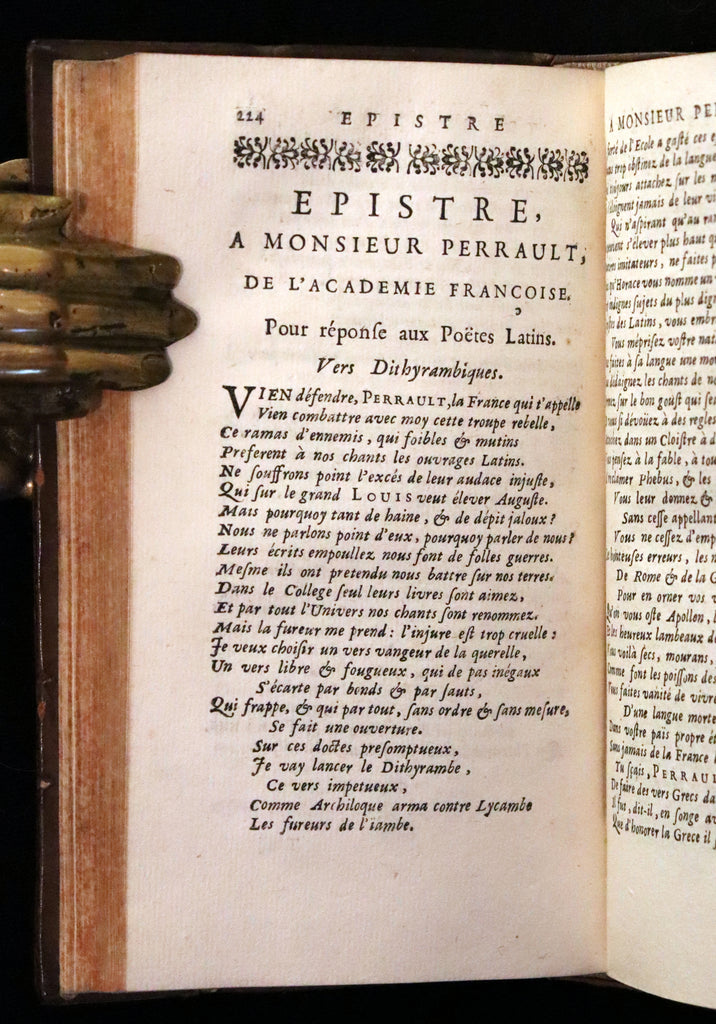 224 EPISTRE
EPISTRE,
A MONSIEUR PERRAULT,
DE L'ACADEMIE FRANCOISE.
Pour réponſe aux Poëtes Latins.
Vers Dithyrambiques.
VIEN défendre, PERRAULT, la France qui t'appelle
Vien combattre avec moy cette troupe rebelle,
Ce ramas d'ennemis, qui foibles & mutins
Preferent à nos chants les ouvrages Latins.
Ne ſouffrons point l'excés de leur audace injuſte,
Qui ſur le grand LOUIS veut élever Auguſte.
Mais pourquoy tant de haine, & de dépit jaloux?
Nous ne parlons point d'eux, pourquoy parler de nous?
Leurs écrits empoullez nous font de folles guerres.
Meſme ils ont pretendu nous battre ſur nos terres.
Dans le College ſeul leurs livres ſont aimez,
Et par tout l'Univers nos chants ſont renommez.
Mais la fureur me prend: l'injure eſt trop cruelle:
Je veux choiſir un vers vangeur de la querelle,
Un vers libre & fougueux, qui de pas inégaux
S'écarte par bonds & par ſauts,
Qui frappe, & qui par tout, ſans ordre & ſans meſure,
Se fait une ouverture.
Sur ces doctes preſomptueux,
Je vay lancer le Dithyrambe,
Ce vers impetueux,
Comme Archiloque arma contre Lycambe
Les fureurs de l'iambe.
A MONSIEUR
de l'Ecole a gaſté ces
trop obſtinez de la langue
toujours attachez ſur les
jamais de leur
Qui n'aſpirant qu'au
s'élever plus haut
imitateurs, ne faites
qu'Horace vous nomme un
indignes ſujets du plus
des Latins, vous
Vous mépriſez voſtre
faites à ſa langue une
dédaignez les chants de
ſur le bon gouſt qui
ſi dévoüez à des regles
dans un Cloiſtre à
penſez à la fable, à
Phebus, & les
Vous leur donnez &
Sans ceſſe appellant
Vous ne ceſſez
honteuſes erreurs, les
De Rome & de la
Pour en orner vos
vous oſte Apollon,
heureux lambeaux
voilà ſecs, mourans,
font les poiſſons
faites vanité de
D'une langue morte
voſtre païs propre
jamais de la France
Tu ſçais, PERRAULT
De faire des vers Grecs
dit-il, en ſonge
Que d'honorer la Grece il